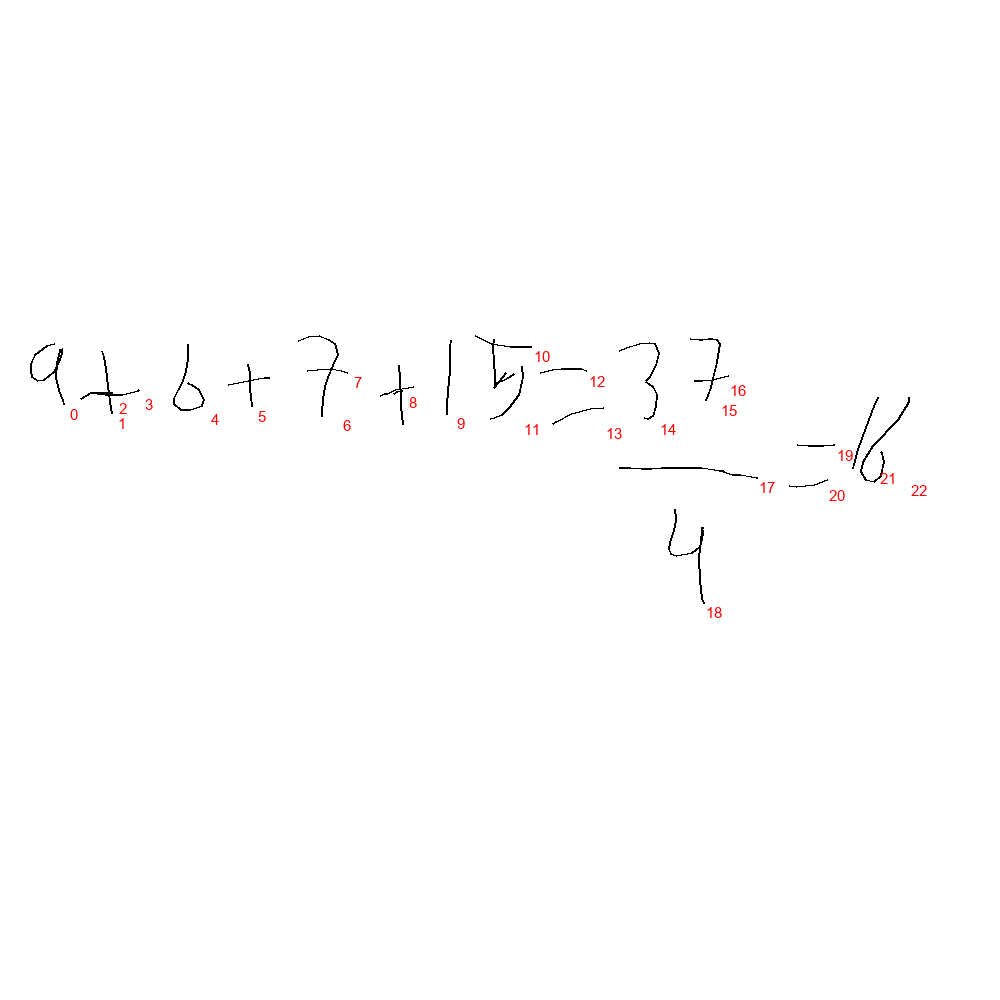 9+6+7+15=37
—
4
=16
0 1 2 3 4 5 6 7 8 9 10 11 12 13 14 15 16 17 18 19 20 21 22